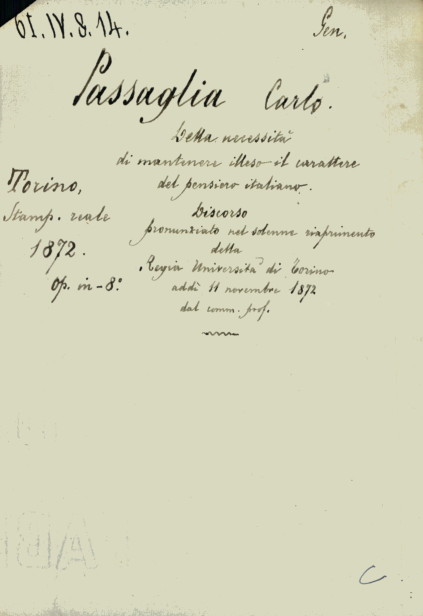 61.IV.8.14.
Gen.
Passaglia Carlo.
Della necessità
di mantenere illeso il carattere
del pensiero italiano.
Torino,
Stamp. reale
1872.
Op. in-8°.
Discorso
pronunziato nel solenne riaprimento
della
Regia Università di Torino
addì 11 novembre 1872
dal comm. prof.
C